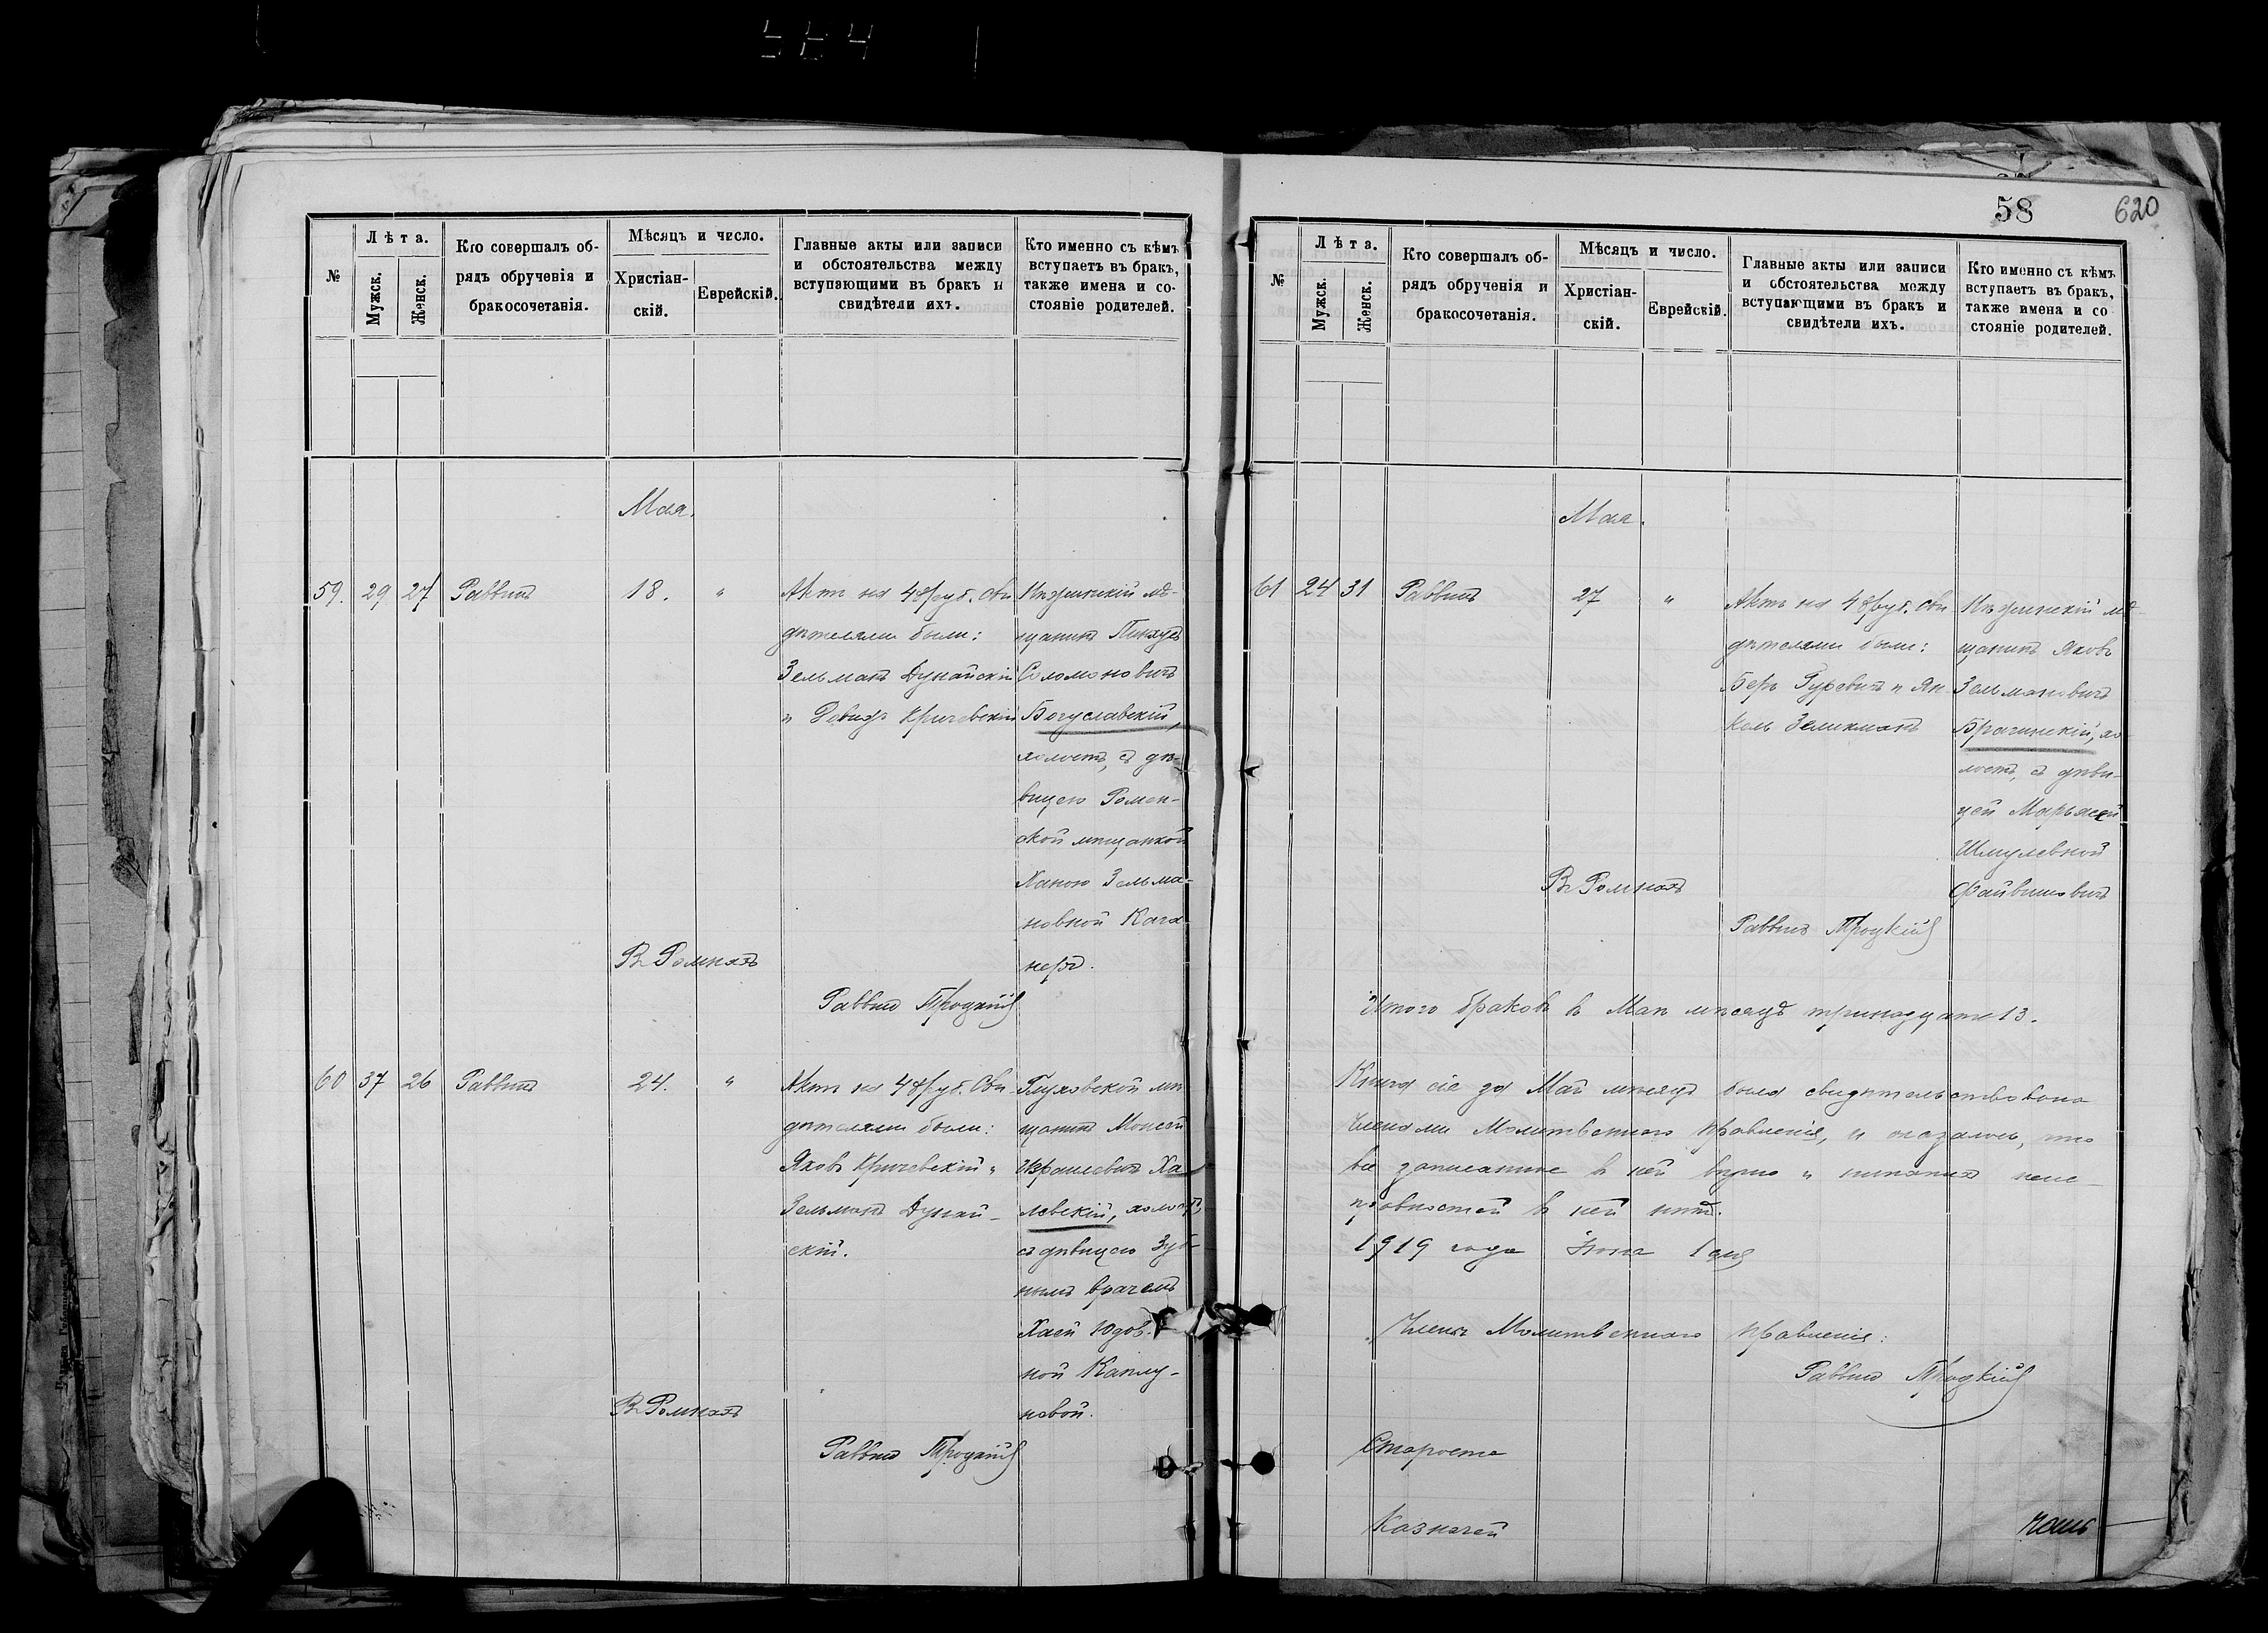 58 620
№
Лѣта.
Мужск.
Женск.
Кто совершалъ об-
рядъ обрученія и
бракосочетанія.
Мѣсяцъ и число.
Христіан-
скій.
Еврейскій.
Главные акты или записи
и обстоятельства между
вступающими въ бракъ и
свидѣтели ихъ.
Кто именно съ кѣмъ
вступаетъ въ бракъ,
также имена и со-
стояніе родителей.
Мая.
59. 29 27 Раввинъ 18. "
Актъ на 48 руб. Сви
дѣтелями были:
Зельманъ Дунайскій
и Давидъ Кричевскій
Нѣжинскій мѣ-
щанинъ Пинхусъ
Соломоновичъ
Богуславскій,
холостъ, съ дѣ-
вицею Ромен-
ской мѣщанкой
Ханою Зельма-
новной Кага-
неръ.
Въ Ромнахъ
Раввинъ Троцкій
60 37 26 Раввинъ 24. "
Актъ на 48 руб. Сви-
дѣтелями были:
Яковъ Кричевскій и
Зельманъ Дунай-
скій.
Глуховской мѣ-
щанинъ Моисей
Израилевичъ Ха-
левскій, холостъ,
съ дѣвицею Зуб-
нымъ врачемъ
Хаей Юдов-
ной Каплу-
новой.
Въ Ромнахъ
Раввинъ Троцкій
№
Лѣта.
Мужск.
Женск.
Кто совершалъ об-
рядъ обрученія и
бракосочетанія.
Мѣсяцъ и число.
Христіан-
скій.
Еврейскій.
Главные акты или записи
и обстоятельства между
вступающими въ бракъ и
свидѣтели ихъ.
Кто именно съ кѣмъ
вступаетъ въ бракъ,
также имена и со
стояніе родителей.
Мая.
61 24 31 Раввинъ 27 "
Актъ на 48 руб. Сви
дѣтелями были:
Беръ Гуревичъ и Ян-
кель Зеликманъ
Нѣжинскій мѣ-
щанинъ Яковъ
Зельмановичъ
Брагинскій, хо-
лостъ, съ дѣви-
цей Марьясей
Шмулевной
Файвишевичъ
Въ Ромнахъ
Раввинъ Троцкій
Итого браковъ въ Маѣ мѣсяцѣ тринадцать 13.
Книга сія за Май мѣсяцъ была свидѣтельствована
Членами Молитвеннаго Правленія, и оказалось, что
все записанное въ ней вѣрно и никакихъ неис-
правностей въ ней нѣтъ.
1919 года Іюня 1 дня
Члены Молитвеннаго Правленія:
Раввинъ Троцкій
Староста
Казначей